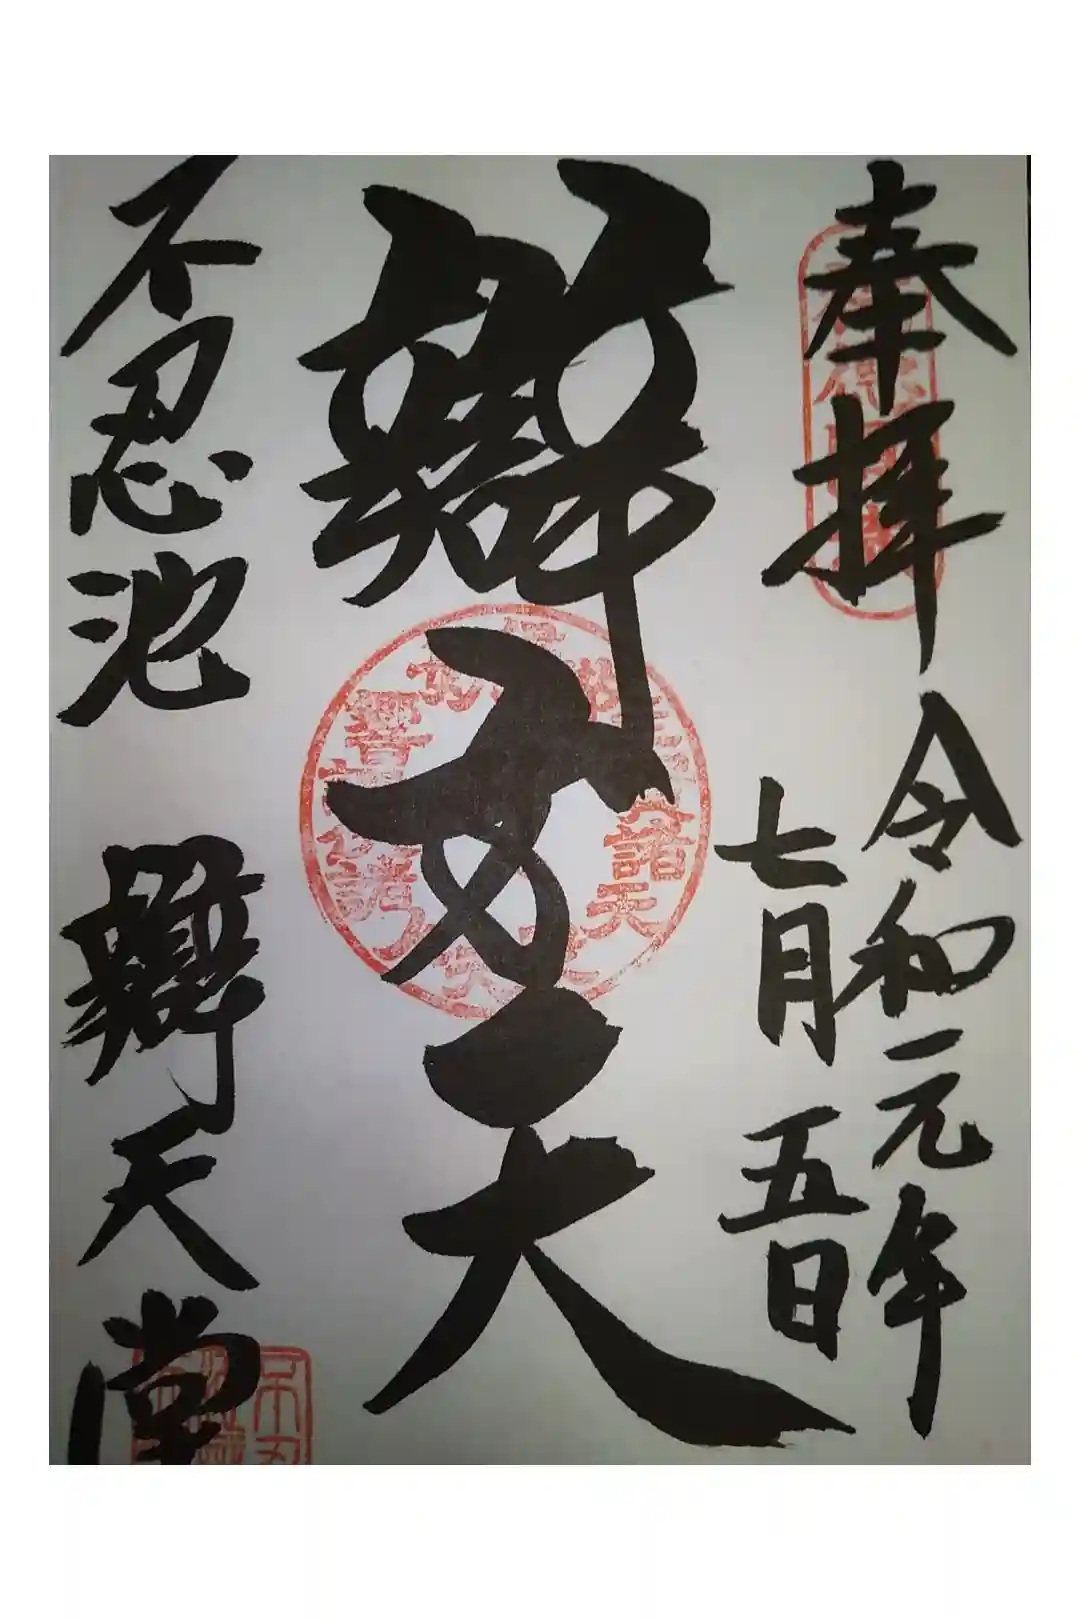 奉拝
令和元年
七月五日
辯才天
不忍池 辯天堂
諸天